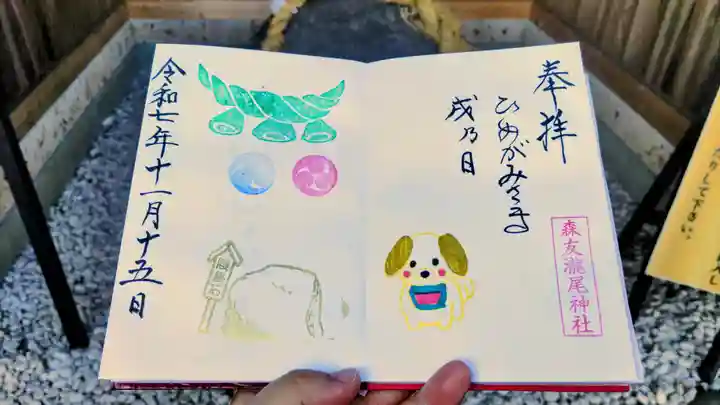 奉拝
ひめがみさま
戌乃日
森友瀧尾神社
令和七年十一月十五日